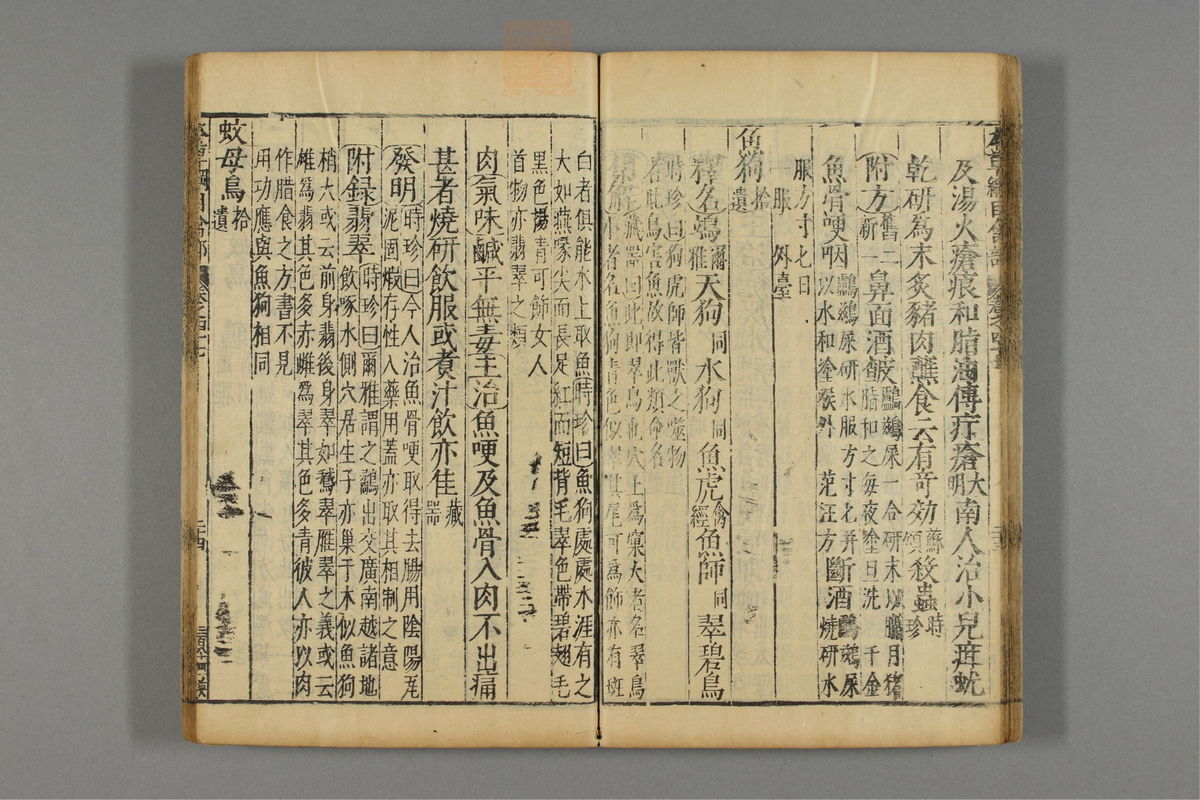 及湯火瘡痕和脂油傅疔瘡大明南人治小兒疳蚘
乾研爲末炙豬肉蘸食云有奇効蘇頌殺蟲時珍
附方舊二新一鼻面酒皶鸕鷀屎一合研末以臘月猪脂和之每夜塗旦洗 千金
魚骨哽咽鸕鷀屎研水服方寸匕并以水和塗喉外 范汪方斷酒鸕鷀屎燒研水
服方寸七日服 外臺
魚狗拾遺
釋名鴗爾雅天狗同水狗同魚虎禽經魚師同翠碧鳥
時珍曰狗虎師皆獸之噬物者此鳥害魚故得此類命名
集解藏器曰此即翠鳥也穴土爲窠大者名翠鳥小者名魚狗青色似翠其尾可為飾亦有斑
白者俱能水上取魚時珍曰魚狗處處水涯有之
大如燕喙尖而長足紅而短背毛翠色帶碧翅毛
黑色揚青可飾女人
首物亦翡翠之類
肉氣味鹹平無毒主治魚哽及魚骨入肉不出痛
甚者燒研飲服或煮汁飲亦佳藏器
發明時珍曰今人治魚骨哽取得去腸用陰陽瓦泥固煅存性入藥用蓋亦取其相制之意
附録翡翠時珍曰爾雅謂之鷸出交廣南越諸地飲啄水側穴居生子亦巢于木似魚狗
稍大或云前身翡後身翠如鵞翠雁翠之義或云
雄爲翡其色多赤雌爲翠其色多青彼人亦以肉
作腊食之方書不見
用功應與魚狗相同
蚊母鳥拾遺